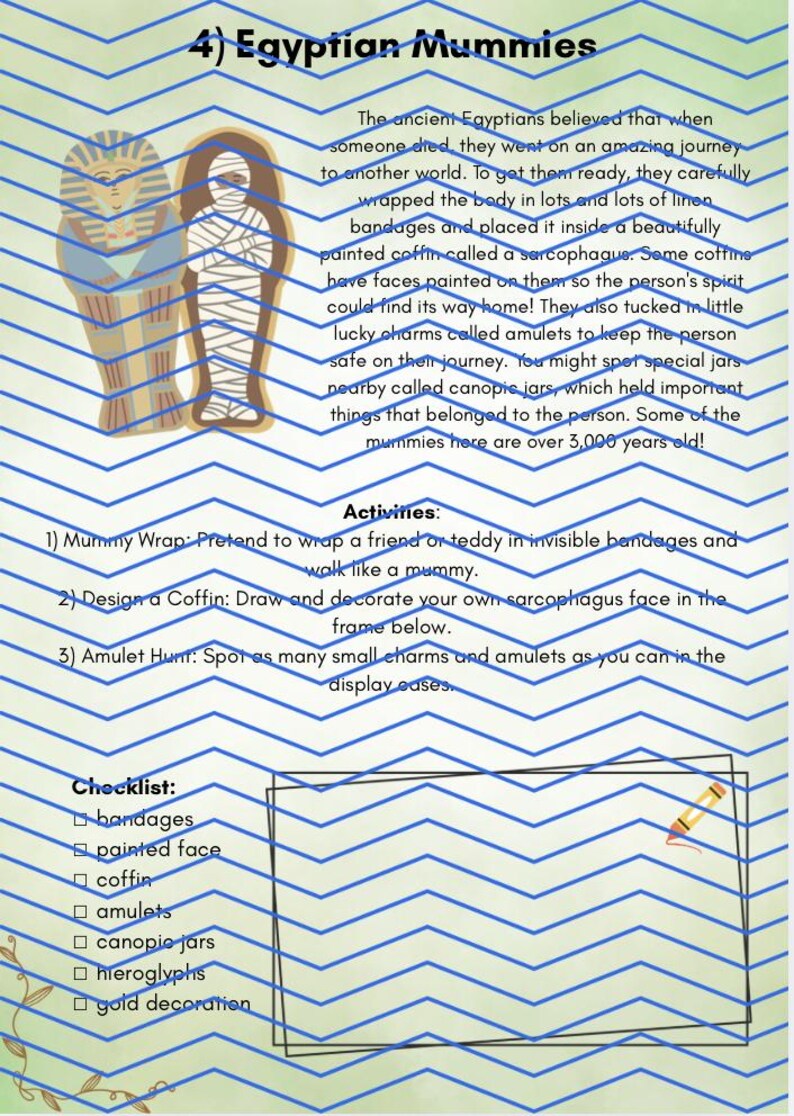 4) Egyptian Mummies
The ancient Egyptians believed that when
someone died, they went on an amazing journey
to another world. To get them ready, they carefully
wrapped the body in lots and lots of linen
bandages and placed it inside a beautifully
painted coffin called a sarcophagus. Some coffins
have faces painted on them so the person's spirit
could find its way home! They also tucked in little
lucky charms called amulets to keep the person
safe on their journey. You might spot special jars
nearby called canopic jars, which held important
things that belonged to the person. Some of the
mummies here are over 3,000 years old!
Activities:
1) Mummy Wrap: Pretend to wrap a friend or teddy in invisible bandages and
walk like a mummy.
2) Design a Coffin: Draw and decorate your own sarcophagus face in the
frame below.
3) Amulet Hunt: Spot as many small charms and amulets as you can in the
display cases.
Checklist:
□ bandages
□ painted face
□ coffin
□ amulets
□ canopic jars
□ hieroglyphs
□ gold decoration